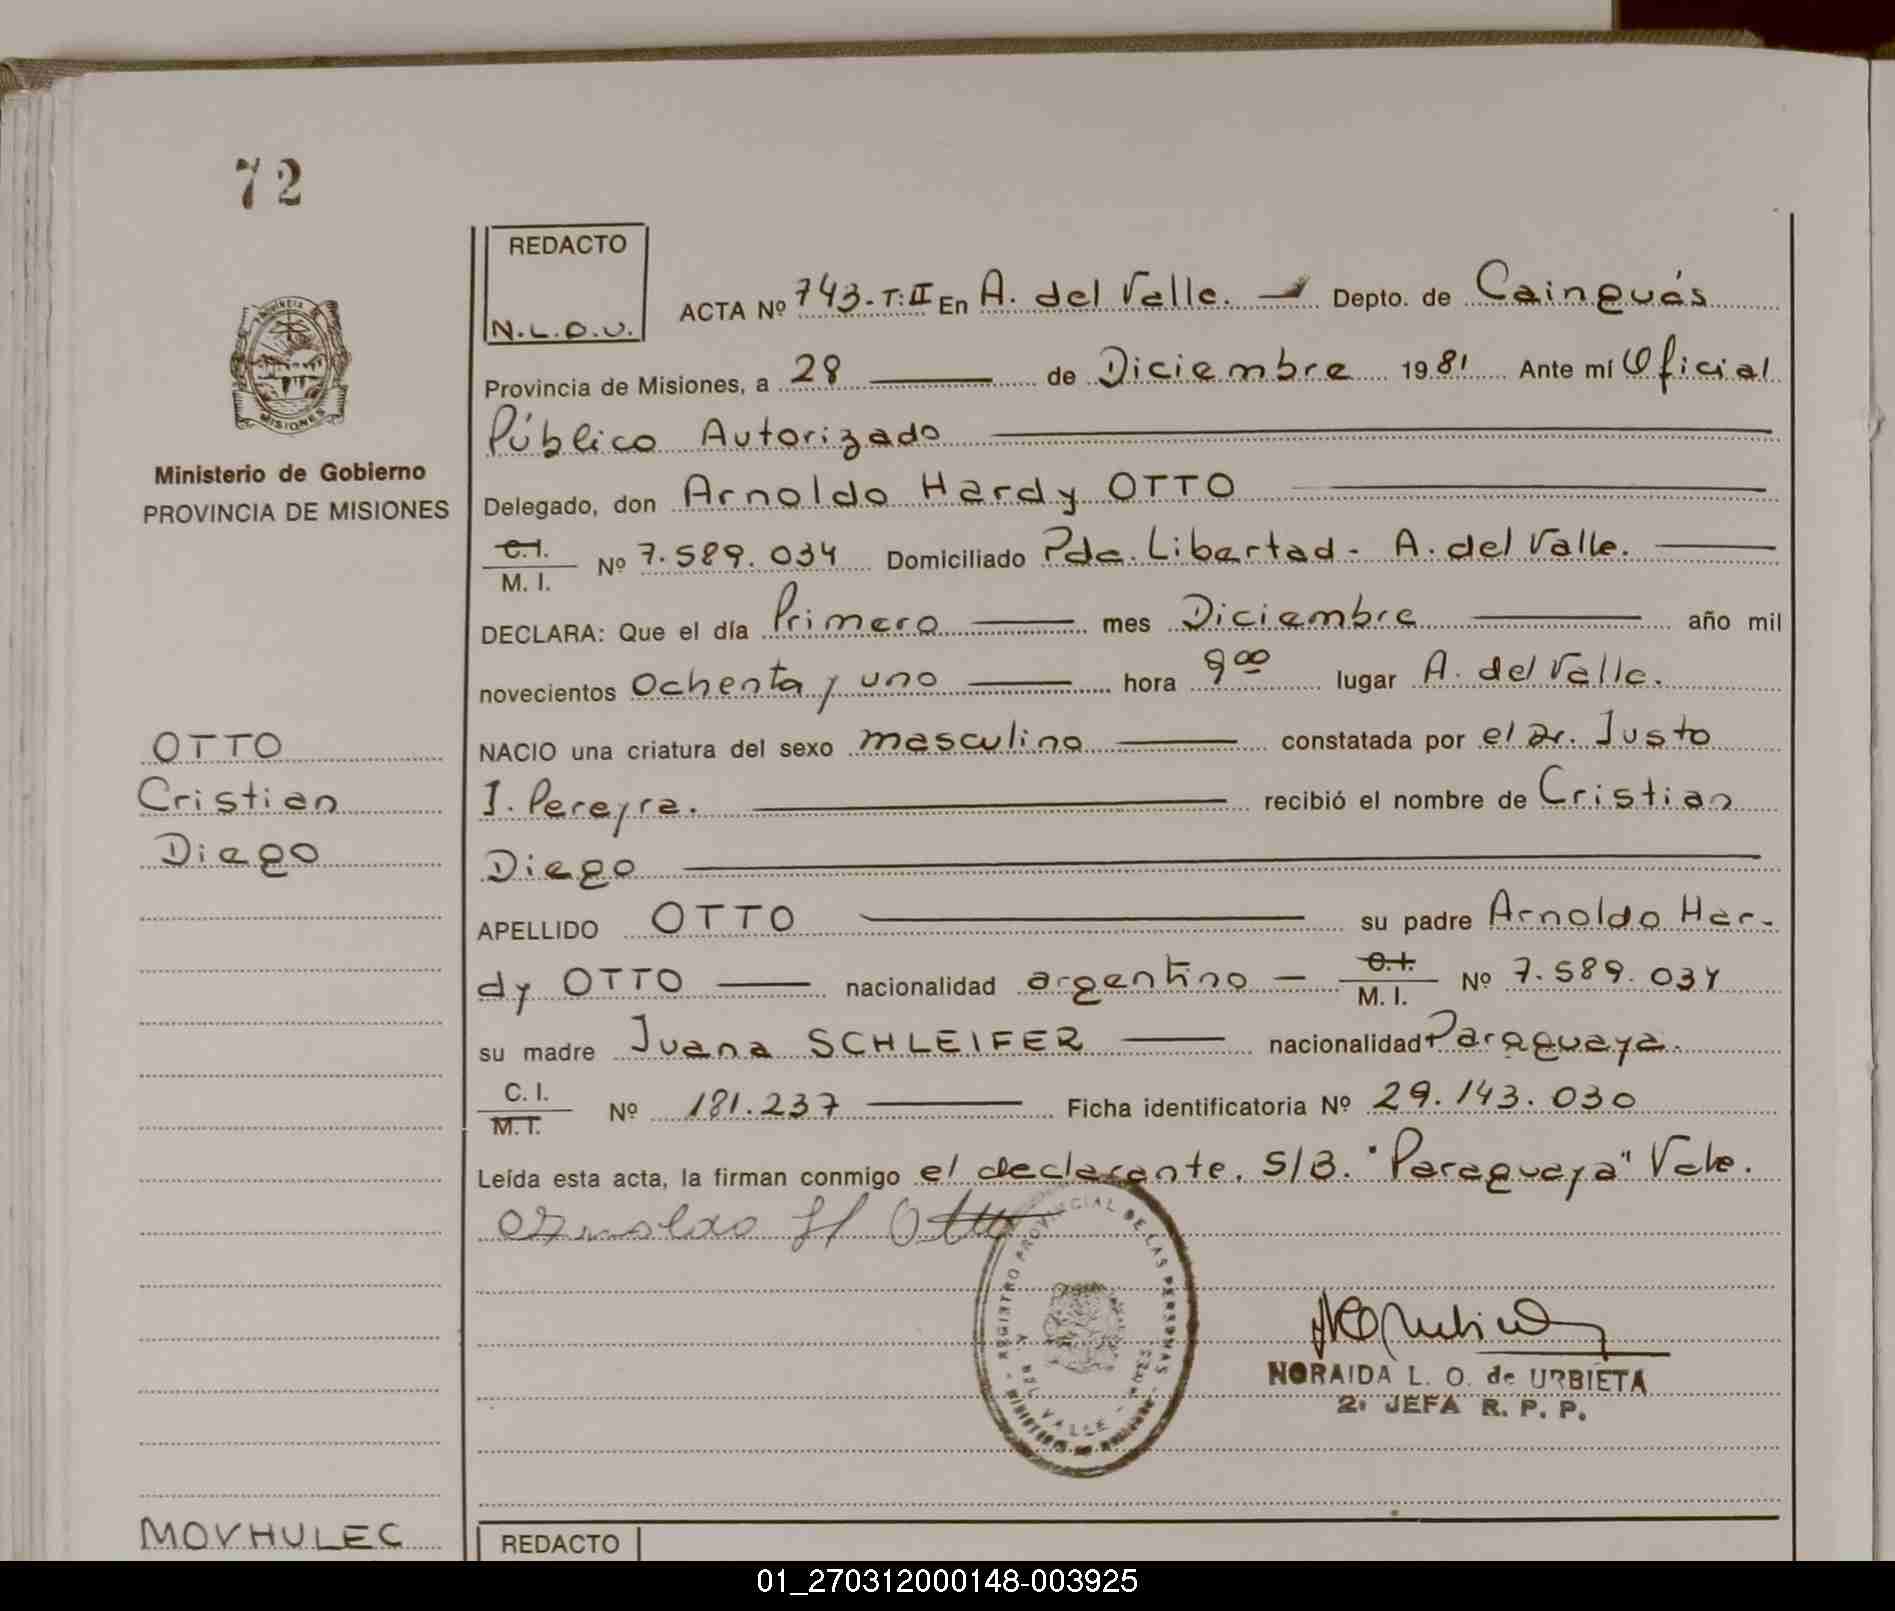 72
REDACTO
N.L.O.U.
ACTA Nº 743-T:II En A. del Valle. Depto. de Cainguás
Provincia de Misiones, a 28 de Diciembre 1981 Ante mí Oficial
Público Autorizado
Ministerio de Gobierno
PROVINCIA DE MISIONES
Delegado, don Arnoldo Hardy OTTO
C.I.
M. I. Nº 7.589.034 Domiciliado Pda. Libertad - A. del Valle.
DECLARA: Que el día Primero mes Diciembre año mil
novecientos Ochenta y uno hora 9 00 lugar A. del Valle.
OTTO
Cristian
Diego
NACIO una criatura del sexo masculino constatada por el Dr. Justo
I. Pereyra. recibió el nombre de Cristian
Diego
APELLIDO OTTO su padre Arnoldo Har-
dy OTTO nacionalidad argentino C.I. M. I. Nº 7.589.034
su madre Juana SCHLEIFER nacionalidad Paraguaya.
C. I.
M. I. Nº 181.237 Ficha identificatoria Nº 29.143.030
Leída esta acta, la firman conmigo el declarante. S/B. "Paraguaya" Vale.
Arnoldo H Otto
REGISTRO PROVINCIAL DE LAS PERSONAS
DEL VALLE
NORAIDA L. O. de URBIETA
2ª JEFA R. P. P.
MOVHULEC
REDACTO
01_270312000148-003925